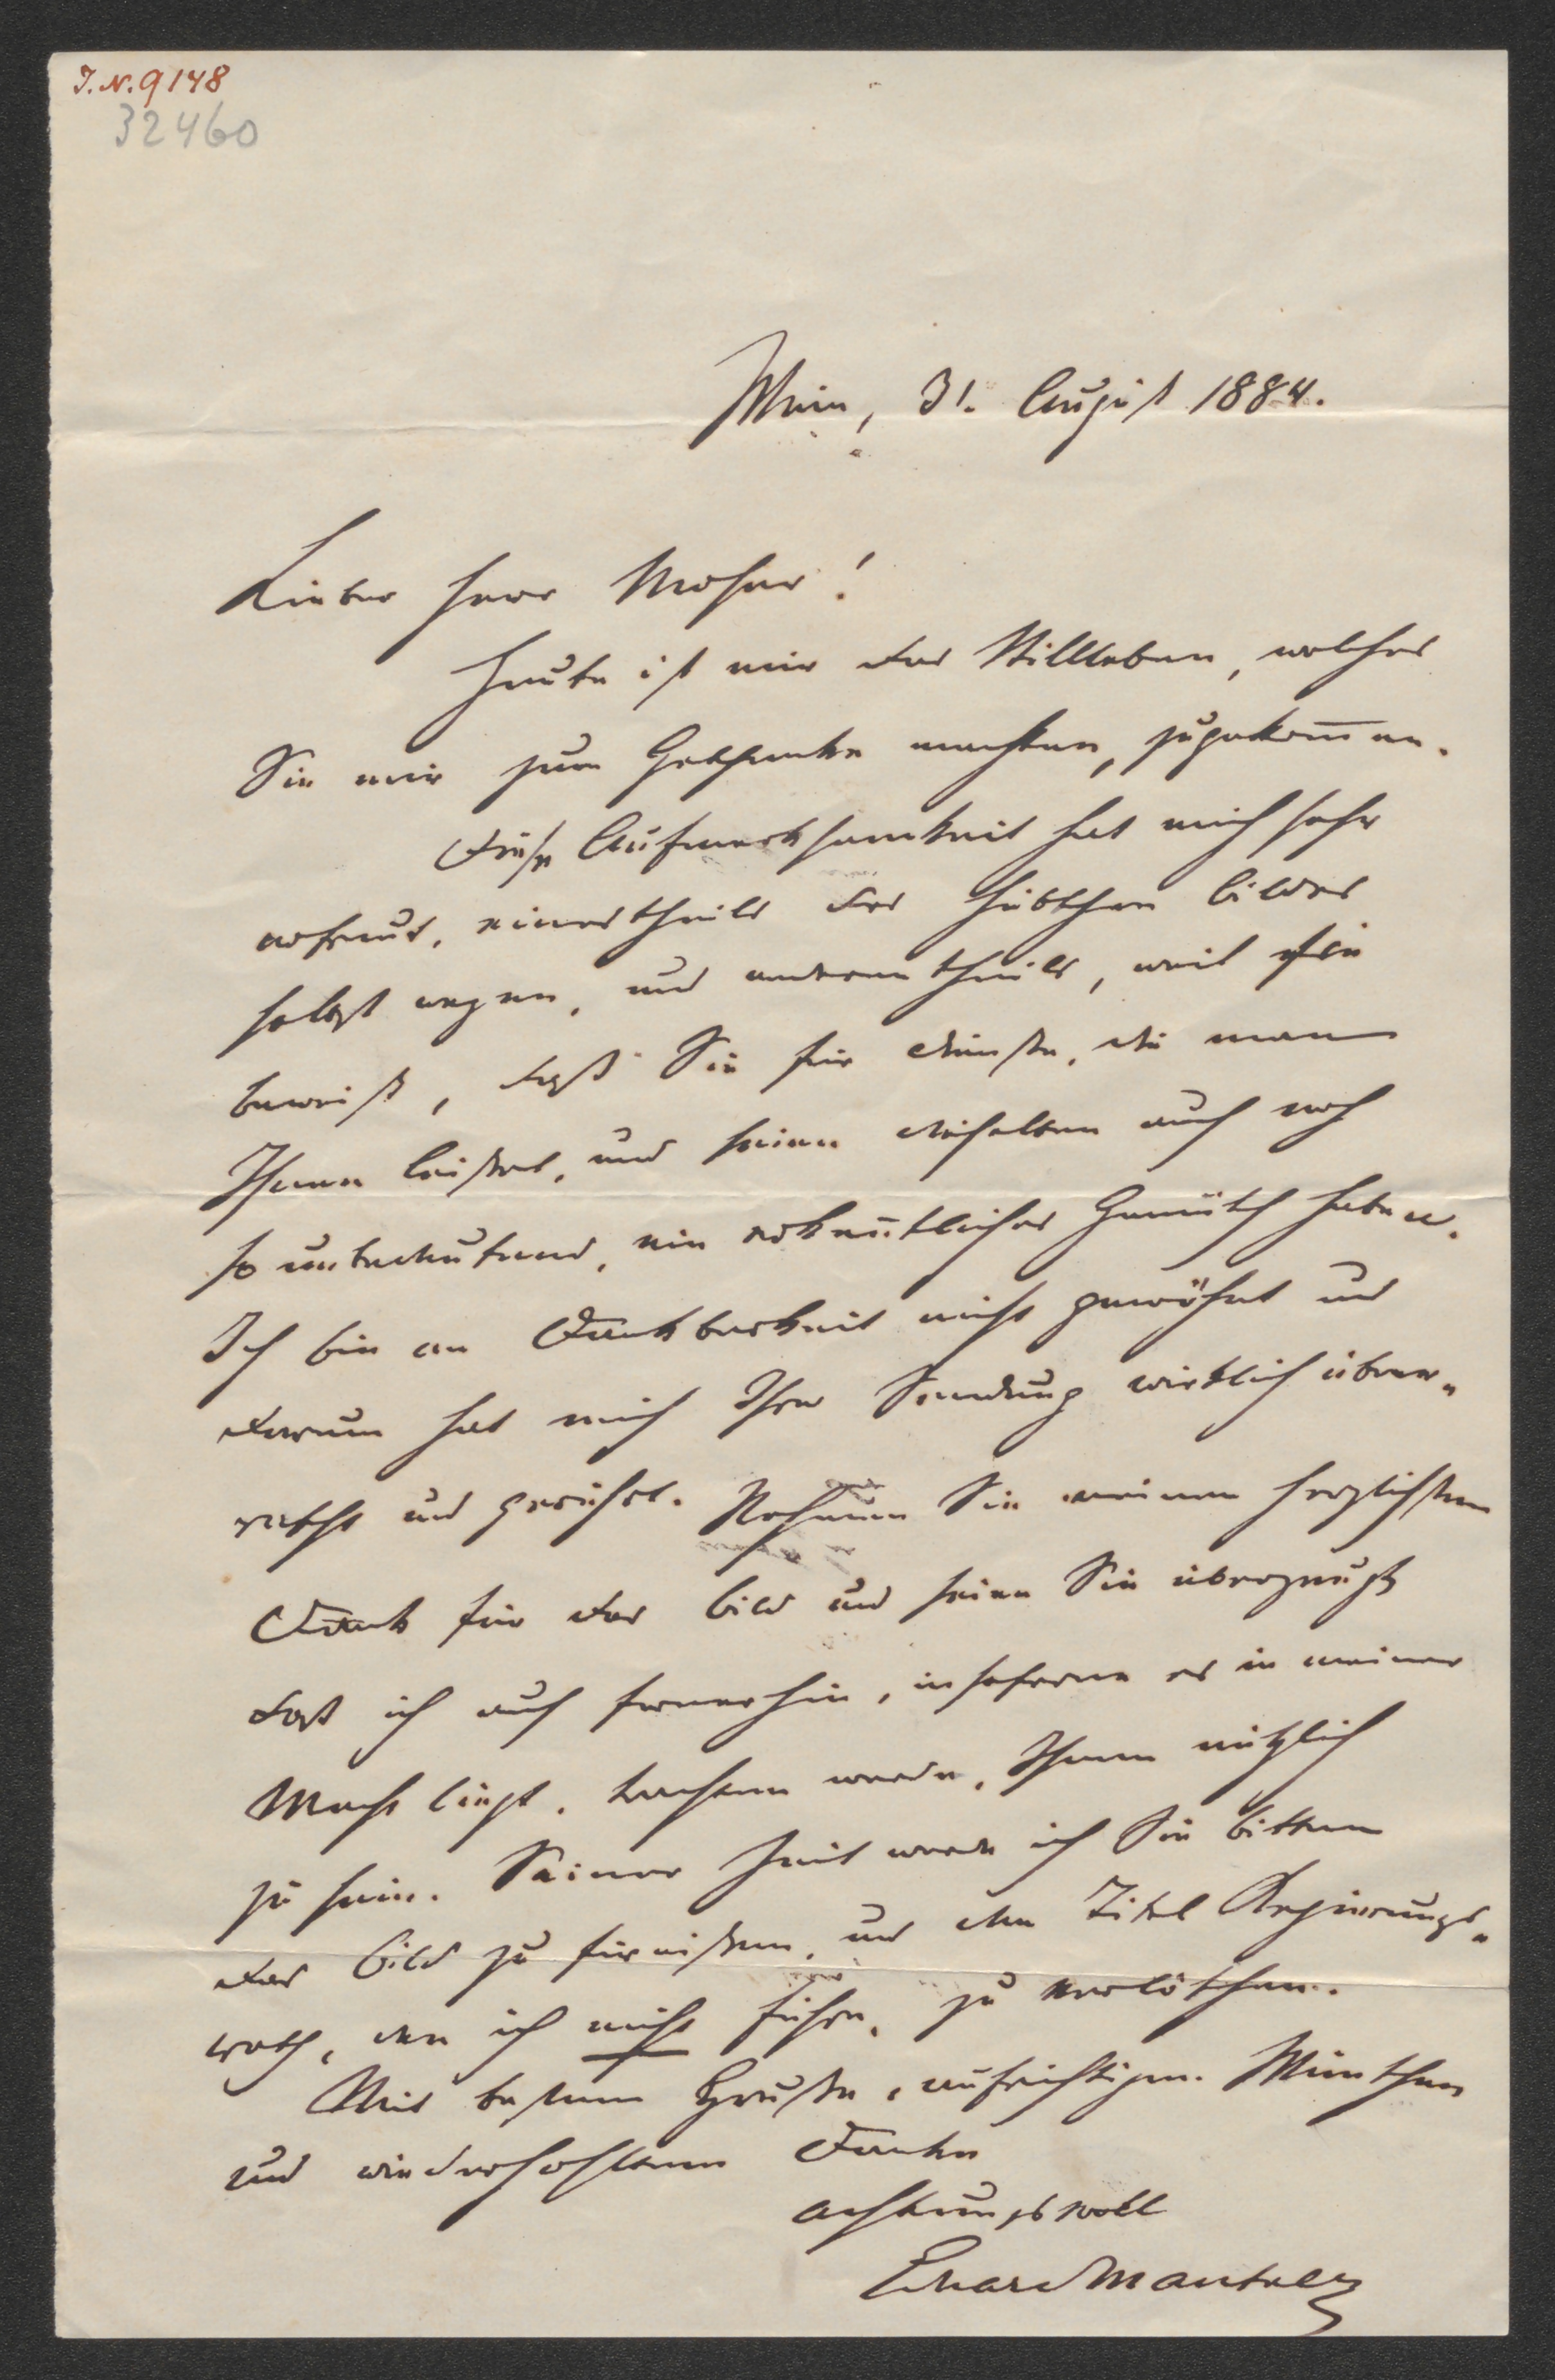 J.N. 9148
32460
Wien, 31. August 1884.
Lieber Herr Moser!
Heute ist mir das Stillleben, welches
Sie mir zum Geschenke machten, zugekom̅en.
Diese Aufmerksamkeit hat mich sehr
erfreut, einestheils des hübschen Bildes
selbst wegen, und anderntheils, weil sie
beweist, daß Sie für Dienste, die man
Ihnen leistet, und seien dieselben auch noch
so unbedeutend, ein erken̅tliches Gemüth haben.
Ich bin an Dankbarkeit nicht gewöhnt und
darum hat mich Ihre Sendung wirklich über-
rascht und gerührt. Nehmen Sie meinen herzlichsten
Dank für das Bild und seien Sie überzeugt
daß ich auch fernerhin, insoferne es in meiner
Macht liegt, trachten werde, Ihnen nützlich
zu sein. Seiner Zeit werde ich Sie bitten
das Bild zu firnissen, und den Titel Regierungs-
rath, den ich nicht führe, zu verlöschen.
Mit bestem Gruße, aufrichtigen Wünschen
und wiederhohltem Danke
achtungsvoll
Eduard Mautner